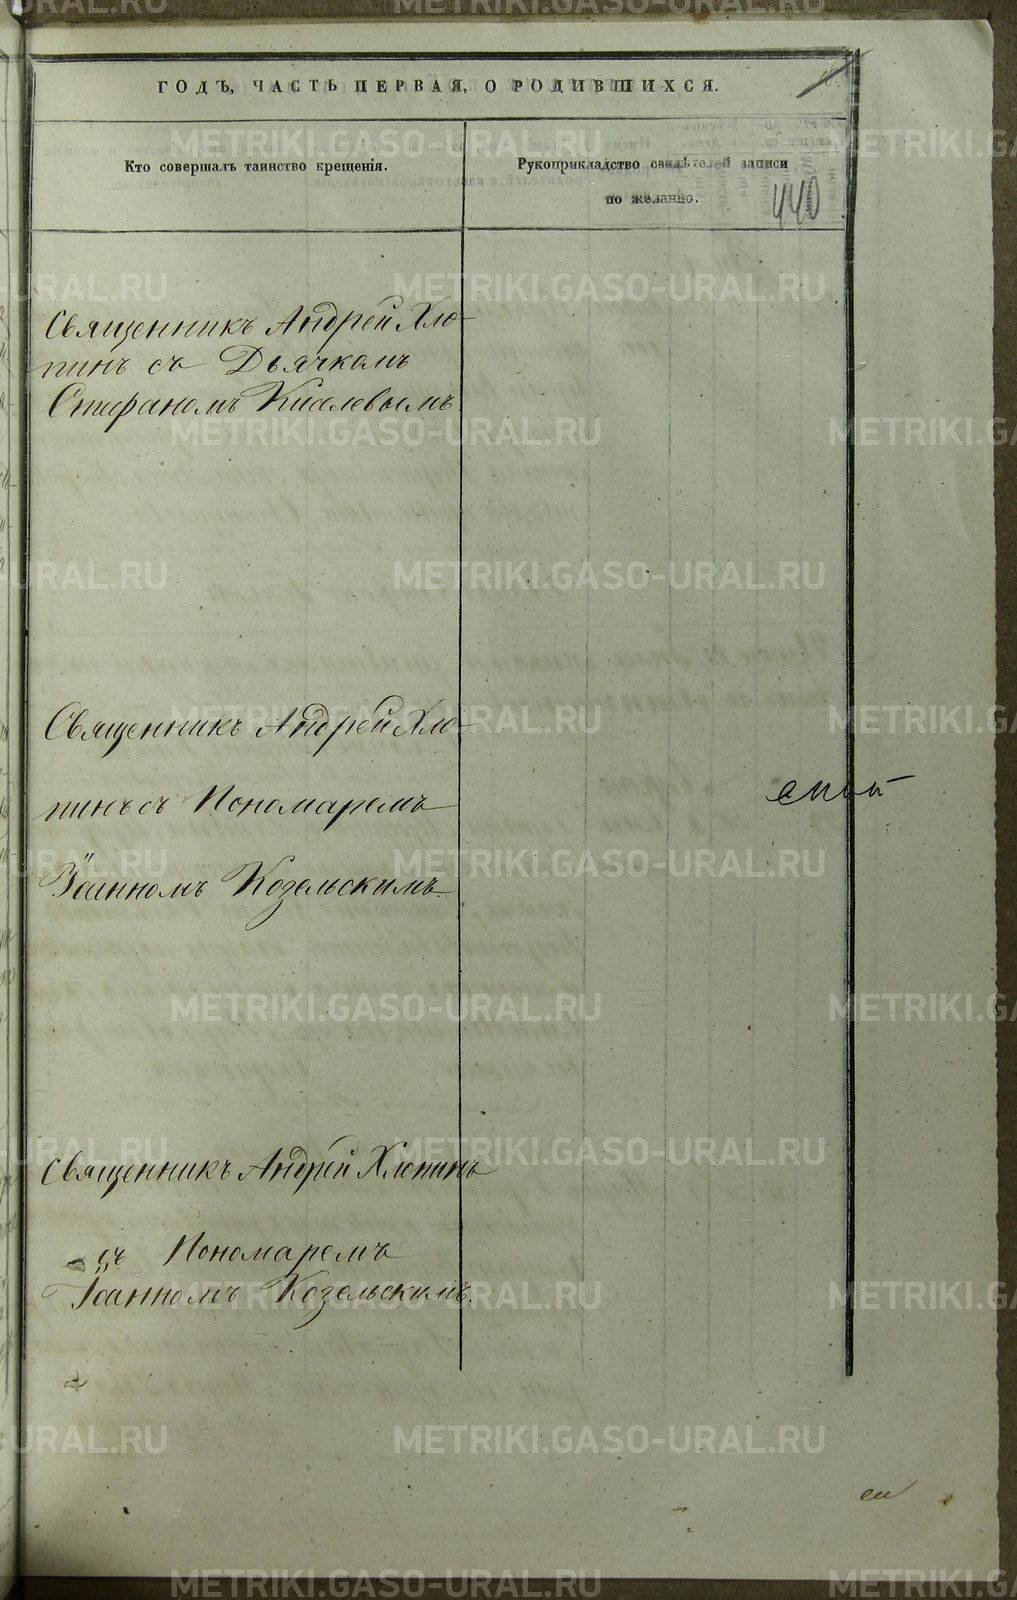 ГОДЪ, ЧАСТЬ ПЕРВАЯ, О РОДИВШИХСЯ.
Кто совершалъ таинство крещенія.
Рукоприкладство свидѣтелей записи
по желанію.
440
Священникъ Андрей Хло-
пинъ съ Дьячкомъ
Стефаномъ Киселевымъ
Священникъ Андрей Хло-
пинъ съ Пономаремъ
Іоанномъ Козельскимъ.
Священникъ Андрей Хлопинъ
съ Пономаремъ
Іоанномъ Козельскимъ.
METRIKI.GASO-URAL.RU